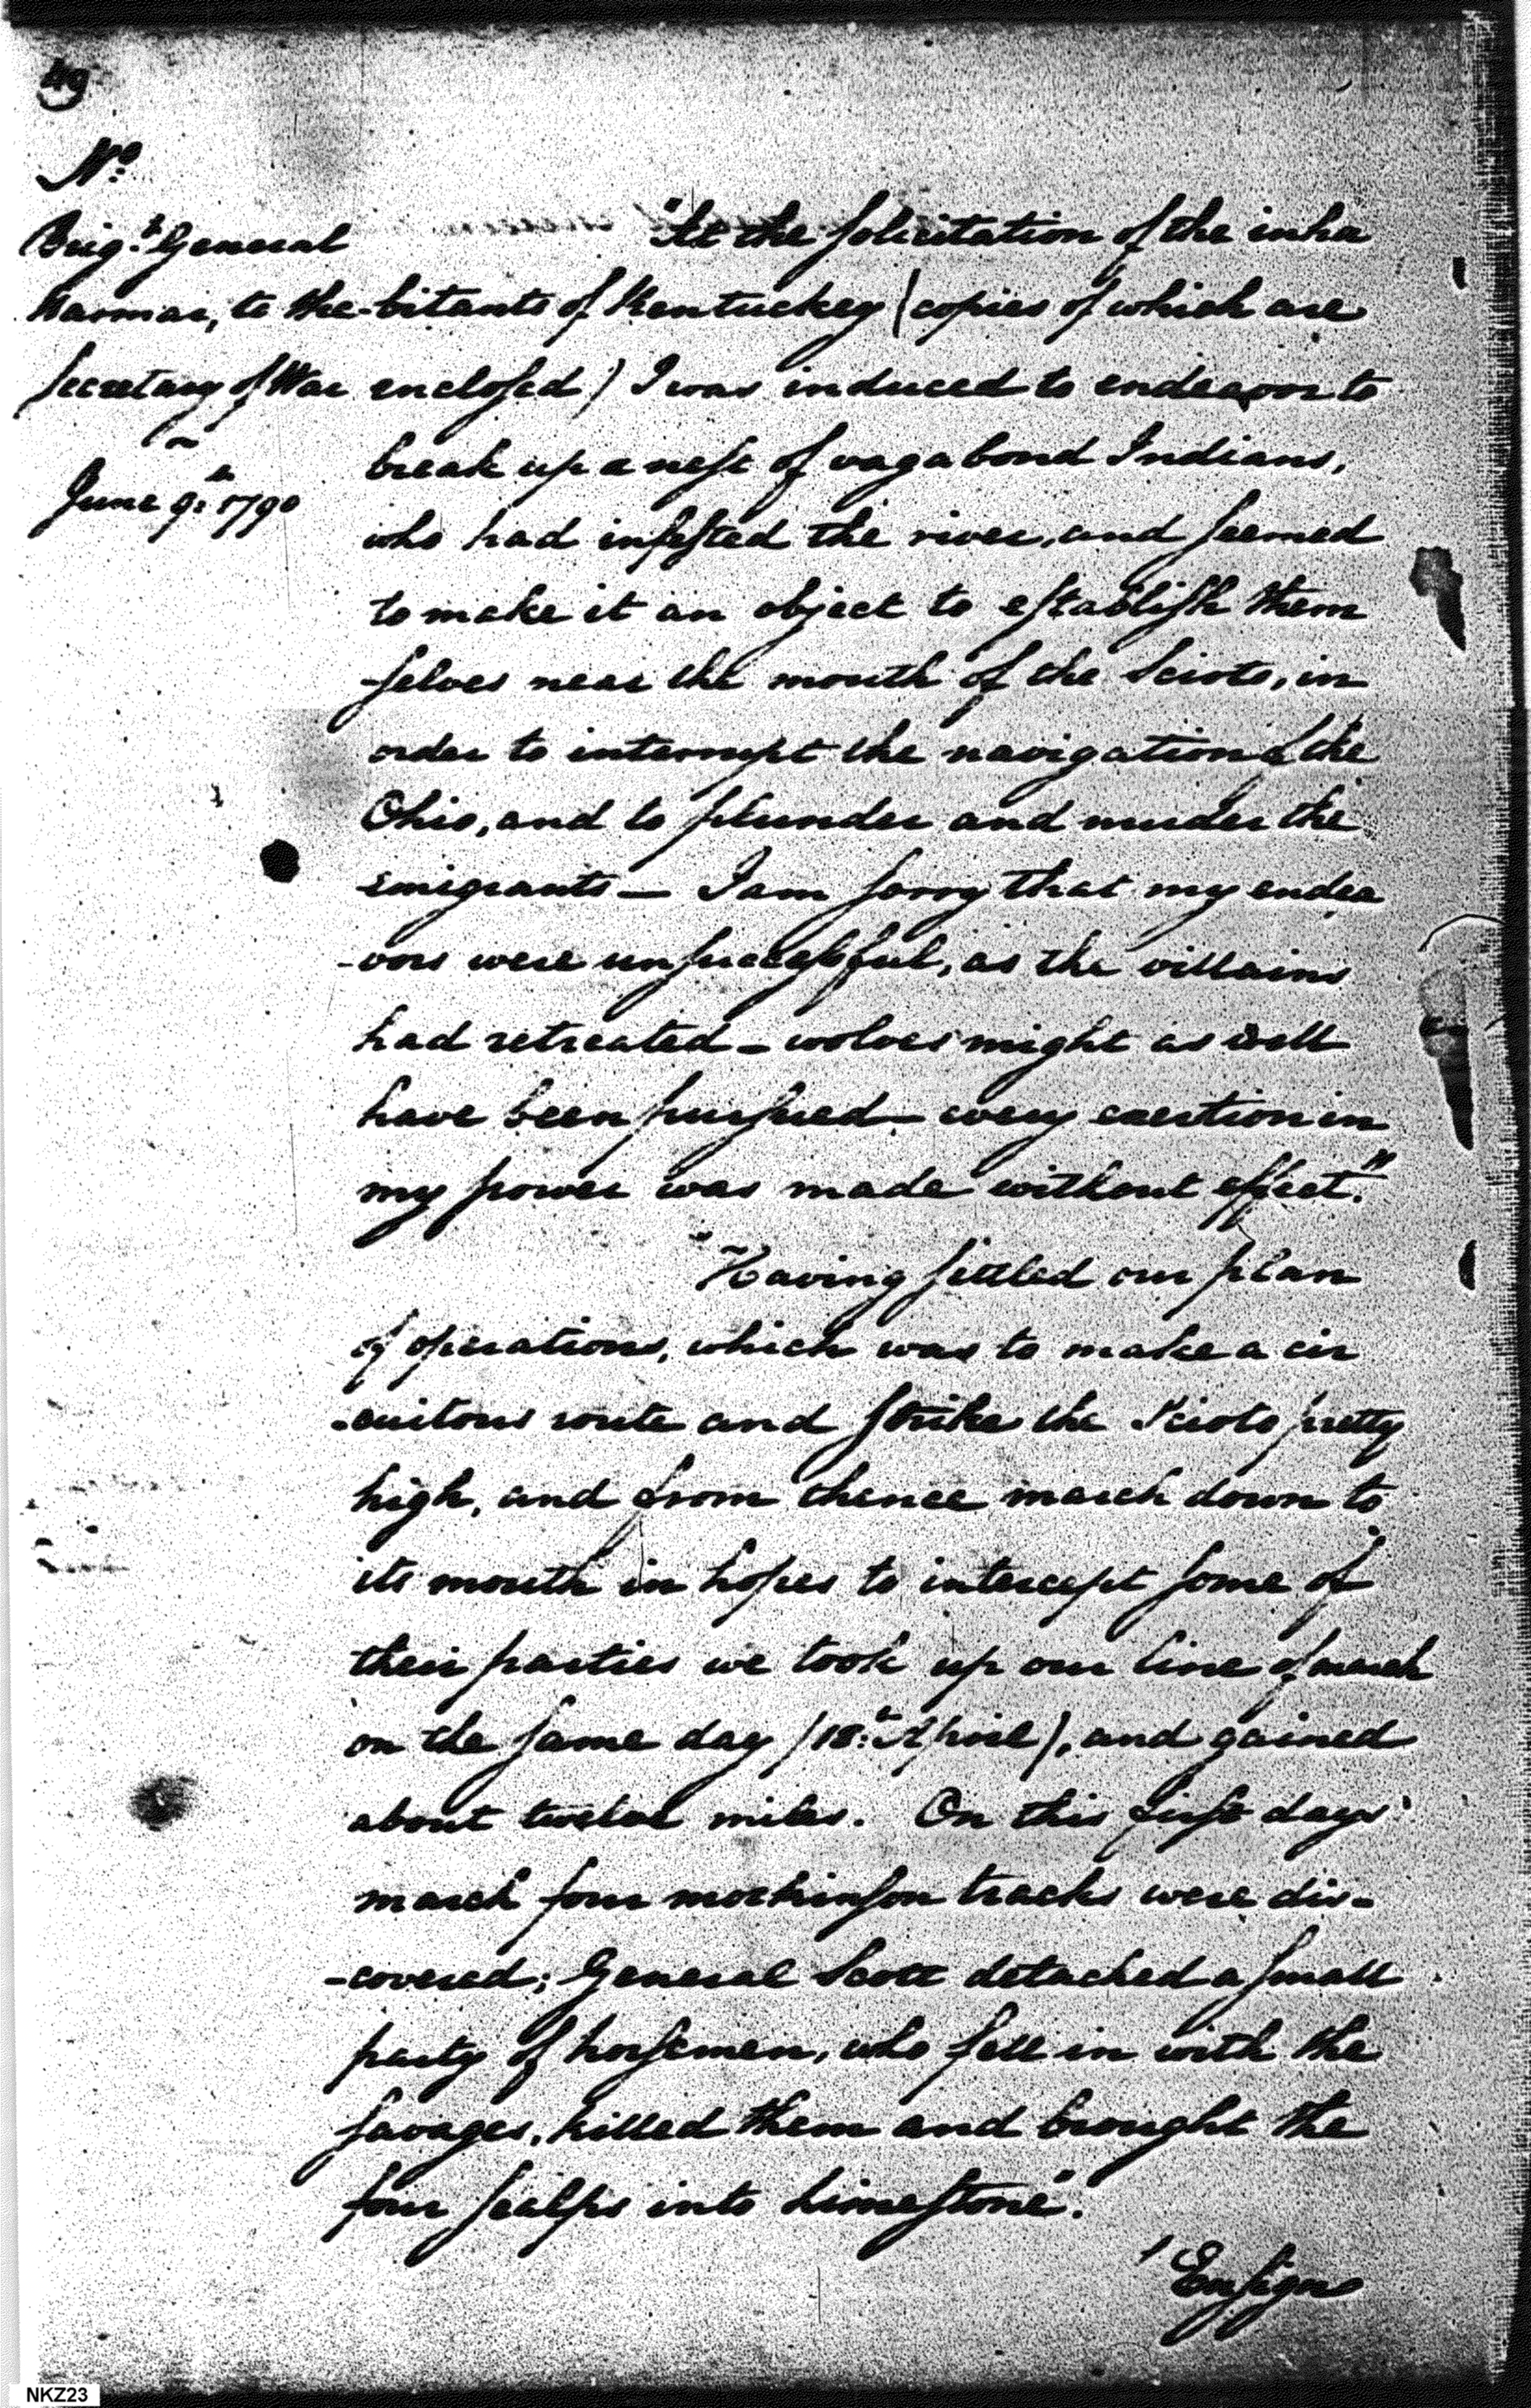 49
No.
Brigr. General
Harmar, to the
Secretary of War
June 9th 1790
"At the solicitation of the inha
-bitants of Kentuckey (copies of which are
enclosed) I was induced to endeavor to
break up a nest of vagabond Indians,
who had infested the river, and seemed
to make it an object to establish them
-selves near the mouth of the Scioto, in
order to interrupt the navigation of the
Ohio, and to plunder and murder the
emigrants — I am sorry that my endea
-vors were unsuccessful, as the villains
had retreated — wolves might as well
have been pursued — every exertion in
my power was made without effect."
"Having settled our plan
of operations, which was to make a cir
-cuitous route and strike the Scioto pretty
high, and from thence march down to
its mouth in hopes to intercept some of
their parties we took up our line of march
on the same day (18th April), and gained
about twelve miles. On this first days
march four mockinson tracks were dis-
-covered; General Scott detached a small
party of horsemen, who fell in with the
savages, killed them and brought the
four scalps into Limestone".
"Ensign
NKZ23